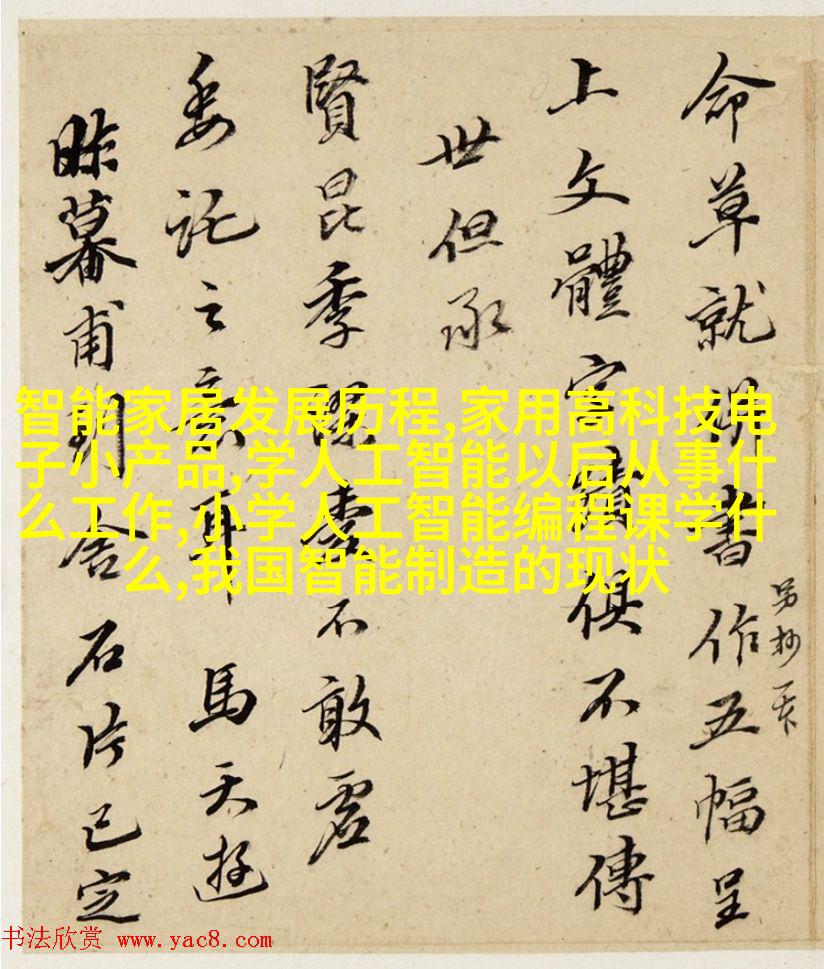 命草就附書作五幅呈
另抄一天
上文體字蹟俱不堪傳
世但承
賢昆季不敢虚
委託之意耳馬天游
昨幕甫到舍石片已定
智能家居发展历程,家用高科技电
子小产品,学人工智能以后从事什
么工作,小学人工智能编程课学什
么,我国智能制造的现状
书法欣赏 www.yac8.com